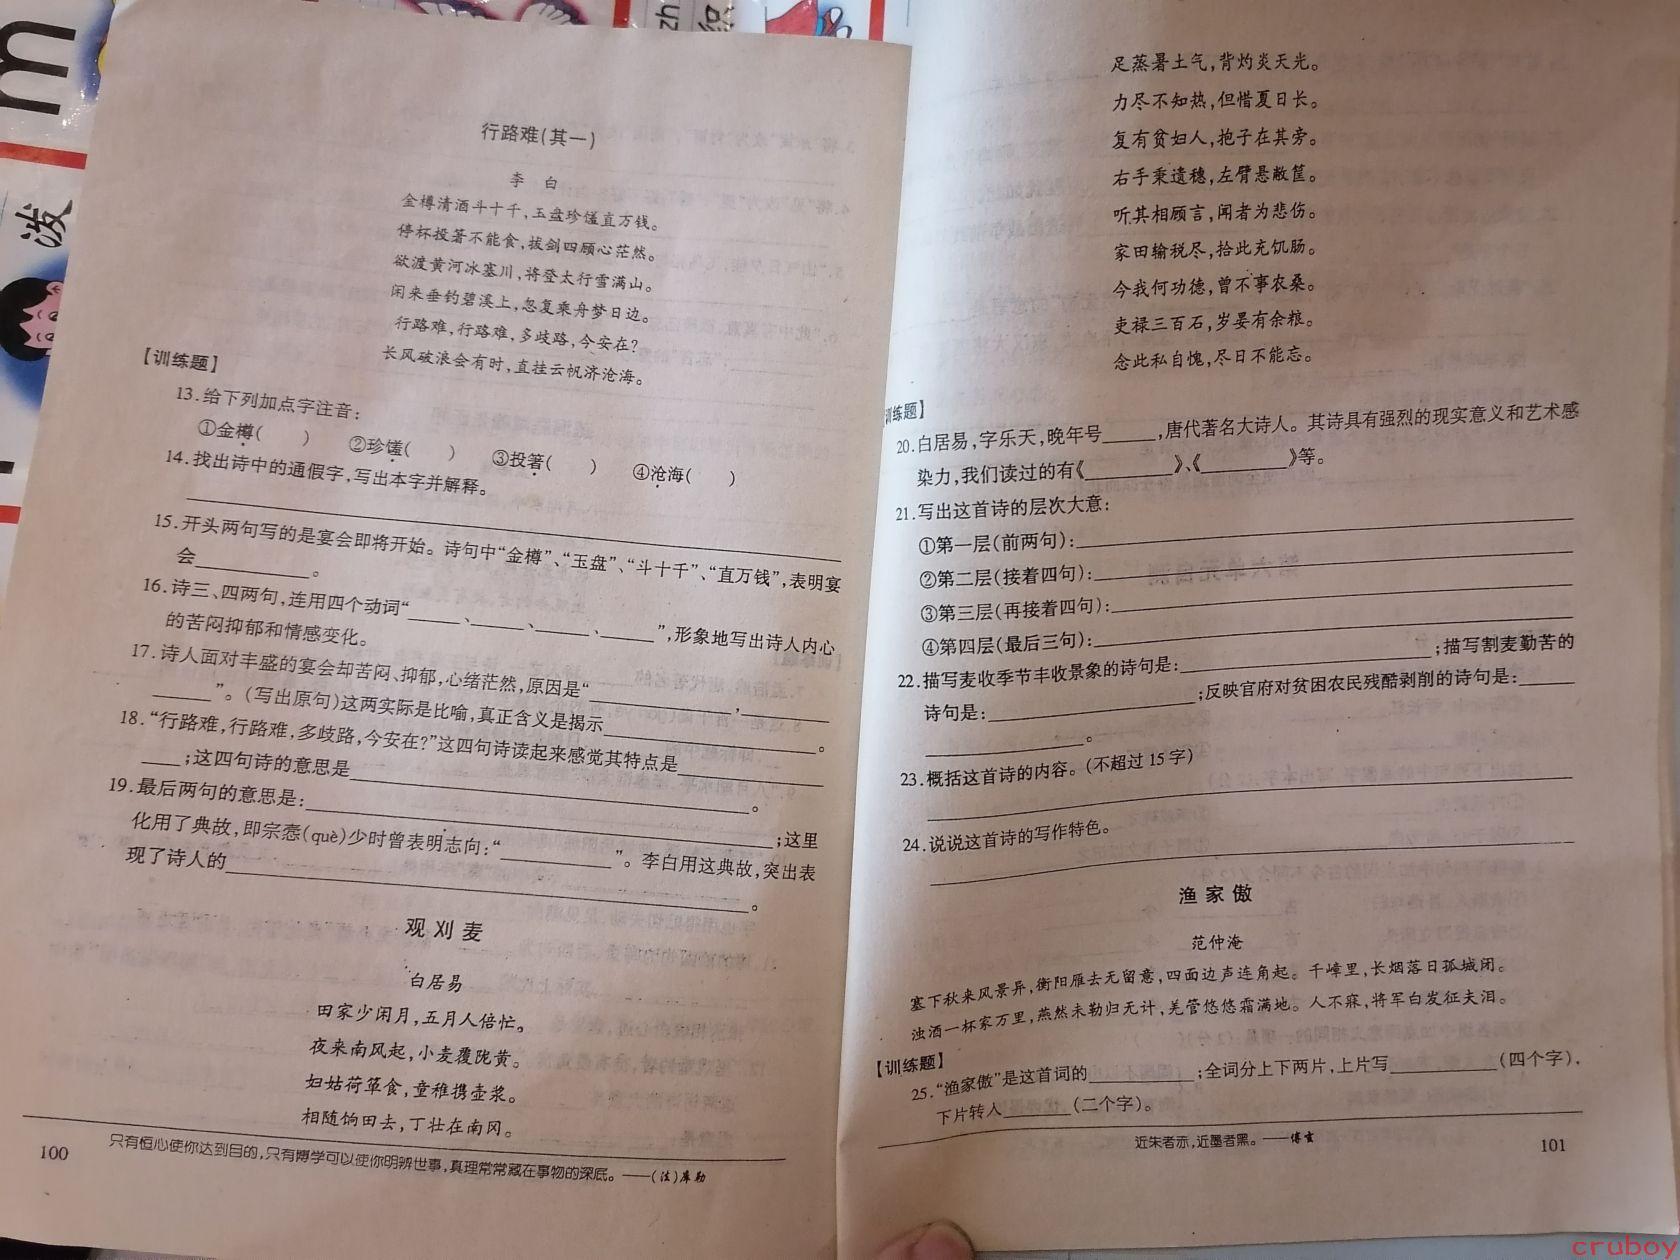 m
泼
zh
行路难(其一)
李 白
金樽清酒斗十千,玉盘珍馐直万钱。
停杯投箸不能食,拔剑四顾心茫然。
欲渡黄河冰塞川,将登太行雪满山。
闲来垂钓碧溪上,忽复乘舟梦日边。
行路难,行路难,多歧路,今安在?
长风破浪会有时,直挂云帆济沧海。
【训练题】
13.给下列加点字注音:
①金樽( ) ②珍馐( ) ③投箸( ) ④沧海( )
14.找出诗中的通假字,写出本字并解释。
15.开头两句写的是宴会即将开始。诗句中“金樽”、“玉盘”、“斗十千”、“直万钱”,表明宴
会______。
16.诗三、四两句,连用四个动词“____、____、____、____”,形象地写出诗人内心
的苦闷抑郁和情感变化。
17.诗人面对丰盛的宴会却苦闷、抑郁,心绪茫然,原因是“________,______
____”。(写出原句)这两实际是比喻,真正含义是揭示____________。
18.“行路难,行路难,多歧路,今安在?”这四句诗读起来感觉其特点是________
___;这四句诗的意思是____________________。
19.最后两句的意思是:______________________;这里
化用了典故,即宗悫(què)少时曾表明志向:“________”。李白用这典故,突出表
现了诗人的____________________。
观刈麦
白居易
田家少闲月,五月人倍忙。
夜来南风起,小麦覆陇黄。
妇姑荷箪食,童稚携壶浆。
相随饷田去,丁壮在南冈。
100
只有恒心使你达到目的,只有博学可以使你明辨世事,真理常常藏在事物的深底。——(法)席勒
足蒸暑土气,背灼炎天光。
力尽不知热,但惜夏日长。
复有贫妇人,抱子在其旁。
右手秉遗穗,左臂悬敝筐。
听其相顾言,闻者为悲伤。
家田输税尽,拾此充饥肠。
今我何功德,曾不事农桑。
吏禄三百石,岁晏有余粮。
念此私自愧,尽日不能忘。
训练题】
20.白居易,字乐天,晚年号____,唐代著名大诗人。其诗具有强烈的现实意义和艺术感
染力,我们读过的有《______》、《______》等。
21.写出这首诗的层次大意:
①第一层(前两句):____________________
②第二层(接着四句):____________________
③第三层(再接着四句):____________________
④第四层(最后三句):____________________
22.描写麦收季节丰收景象的诗句是:________________;描写割麦勤苦的
诗句是:______________;反映官府对贫困农民残酷剥削的诗句是:____
__________。
23.概括这首诗的内容。(不超过15字)
24.说说这首诗的写作特色。
渔家傲
范仲淹
塞下秋来风景异,衡阳雁去无留意,四面边声连角起。千嶂里,长烟落日孤城闭。
浊酒一杯家万里,燕然未勒归无计,羌管悠悠霜满地。人不寐,将军白发征夫泪。
【训练题】
25.“渔家傲”是这首词的_______;全词分上下两片,上片写_______(四个字),
下片转入_____(二个字)。
近朱者赤,近墨者黑。——傅玄
101
cruboy